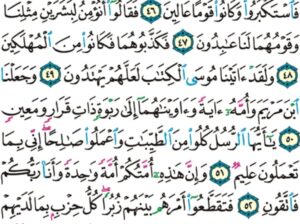 فَاسْتَكْبَرُوا وَكَانُوا قَوْمًا عَالِينَ ٤٦ فَقَالُوا أَنُؤْمِنُ لِبَشَرَيْنِ مِثْلِنَا
وَقَوْمُهُمَا لَنَا عَابِدُونَ ٤٧ فَكَذَّبُوهُمَا فَكَانُوا مِنَ الْمُهْلَكِينَ
٤٨ وَلَقَدْ آتَيْنَا مُوسَى الْكِتَابَ لَعَلَّهُمْ يَهْتَدُونَ ٤٩ وَجَعَلْنَا
ابْنَ مَرْيَمَ وَأُمَّهُ آيَةً وَآوَيْنَاهُمَا إِلَى رَبْوَةٍ ذَاتِ قَرَارٍ وَمَعِينٍ
٥٠ يَا أَيُّهَا الرُّسُلُ كُلُوا مِنَ الطَّيِّبَاتِ وَاعْمَلُوا صَالِحًا إِنِّي بِمَا
تَعْمَلُونَ عَلِيمٌ ٥١ وَإِنَّ هَذِهِ أُمَّتُكُمْ أُمَّةً وَاحِدَةً وَأَنَا رَبُّكُمْ
فَاتَّقُونِ ٥٢ فَتَقَطَّعُوا أَمْرَهُم بَيْنَهُمْ زُبُرًا كُلُّ حِزْبٍ بِمَا لَدَيْهِمْ